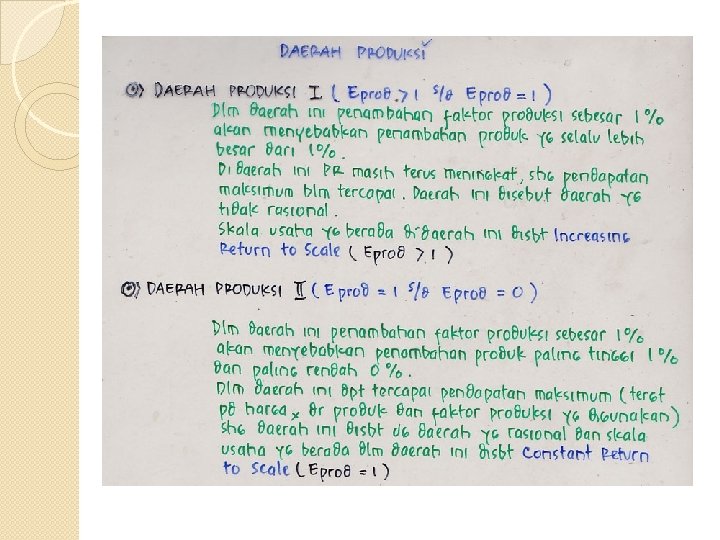 DAERAH PRODUKSI
DAERAH PRODUKSI I ( Eprod > 1 s/d Eprod = 1 )
Dlm daerah ini penambahan faktor produksi sebesar 1%
akan menyebabkan penambahan produk yg selalu lebih
besar dari 1%.
Di daerah ini PR masih terus meningkat, shg pendapatan
maksimum blm tercapai. Daerah ini disebut daerah yg
tidak rasional.
Skala usaha yg berada di daerah ini disbt Increasing
Return to Scale ( Eprod > 1 )
DAERAH PRODUKSI II ( Eprod = 1 s/d Eprod = 0 )
Dlm daerah ini penambahan faktor produksi sebesar 1%
akan menyebabkan penambahan produk paling tinggi 1%
dan paling rendah 0%.
Dlm daerah ini dpt tercapai pendapatan maksimum ( tergt
pd harga x dr produk dan faktor produksi yg digunakan )
shg daerah ini disbt dg daerah yg rasional dan skala
usaha yg berada dlm daerah ini disbt Constant Return
to Scale ( Eprod = 1 )